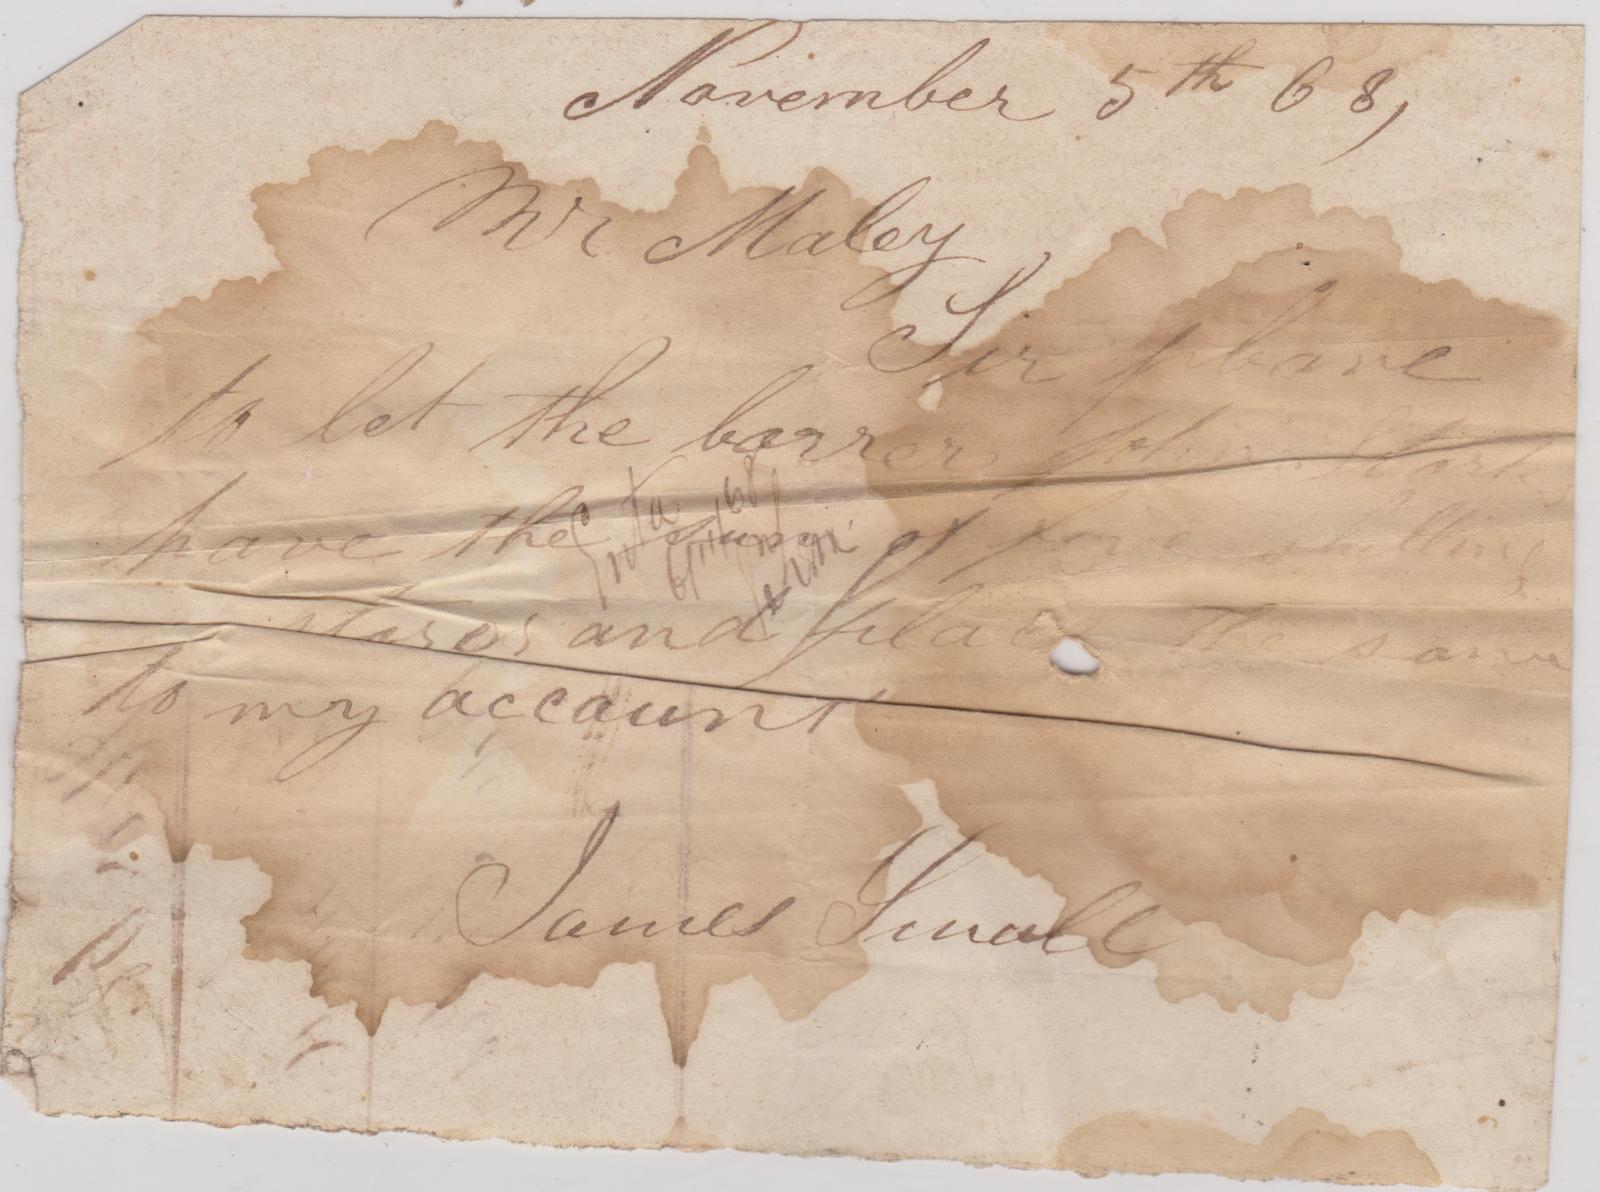 November 5th 68,
Mr Maley
Sir please
to let the barrer John
have the sum of five shillings
and place the same
to my account
James Small